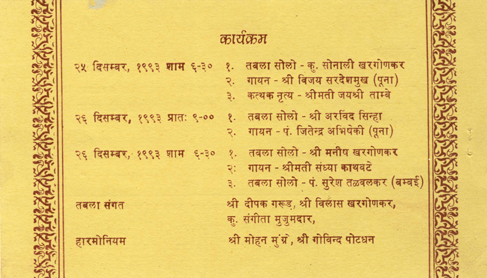 कार्यक्रम
२५ दिसम्बर, १९९३ शाम ६-३० १. तबला सोलो - कु. सोनाली खरगोणकर
२. गायन - श्री विजय सरदेशमुख (पूना)
३. कत्थक नृत्य - श्रीमती जयश्री ताम्बे
२६ दिसम्बर, १९९३ प्रातः ९-०० १. तबला सोलो - श्री अरविंद सिन्हा
२. गायन - पं. जितेन्द्र अभिषेकी (पूना)
२६ दिसम्बर, १९९३ शाम ६-३० १. तबला सोलो - श्री मनीष खरगोणकर
२: गायन - श्रीमती संध्या काथवटे
३. तबला सोलो - पं. सुरेश तळवलकर (बम्बई)
तबला संगत श्री दीपक गरूड, श्री विलास खरगोणकर,
कु. संगीता मुजुमदार,
हारमोनियम श्री मोहन मुंग्रे, श्री गोविन्द पोटधन